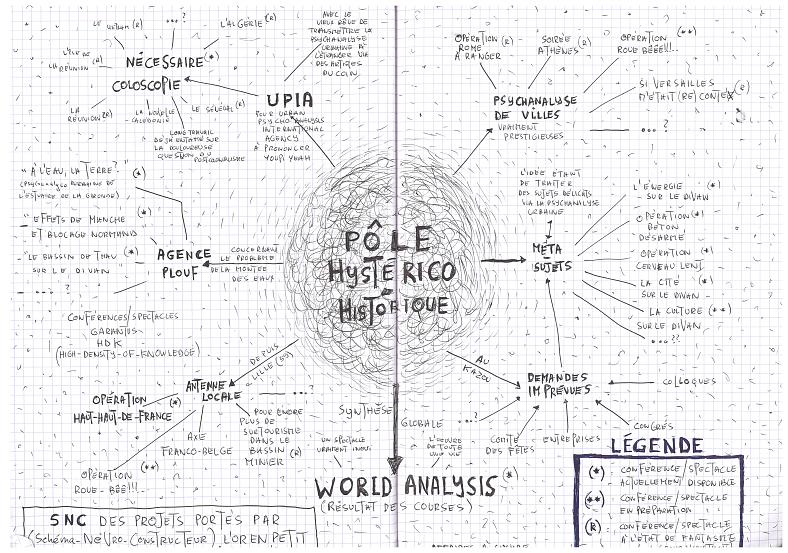 NÉCESSAIRE (*)
COLOSCOPIE
...?
L'ALGÉRIE (R)
LA
RÉUNION (R)
LA NOUVELLE
CALÉDONIE
LE SÉNÉGAL (R)
LONG TRAVAIL
QUESTION DU POSTCOLONIALISME
AVEC LE
VIEUX RÊVE DE
TRANSMETTRE LA
PSYCHANALYSE
URBAINE À
L'ÉTRANGER VIA
DES ARTISTES
DU COIN
UPIA
POUR URBAN
PSYCHO ANALYSIS
INTERNATIONAL
AGENCY
À PRONONCER
YOUPI YEAH
OPÉRATION
ROME (R)
À RANGER
SOIRÉE
ATHÈNES (R)
OPÉRATION (**)
ROUE BÊÊÊ!!!
SI VERSAILLES (R)
M'ÉTAIT (RE) CONTÉ
...?
PSYCHANALYSE
DE VILLES
VRAIMENT
PRESTIGIEUSES
"À L'EAU, LA TERRE?" (*)
L'ESTUAIRE DE LA GIRONDE)
"EFFETS DE MANCHE (*)
ET BLOCAGE NORMAND"
"LE BASSIN DE THAU (*)
SUR LE DIVAN
... ?
AGENCE
PLOUF
CONCERNANT
LE PROBLÈME
DE LA MONTÉE
DES EAUX
PÔLE
HYSTÉRICO
HISTORIQUE
L'IDÉE ÉTANT
DE TRAITER
DES SUJETS DÉLICATS
VIA LA PSYCHANALYSE
URBAINE
MÉTA
SUJETS
L'ÉNERGIE (*)
SUR LE DIVAN
OPÉRATION (*)
BÉTON
DÉSARMÉ
OPÉRATION (*)
CERVEAU LENT
LA CITÉ (*)
SUR LE DIVAN
LA CULTURE (**)
SUR LE DIVAN
...??
CONFÉRENCES/SPECTACLES
GARANTIS
HDK
(HIGH-DENSITY-OF-KNOWLEDGE)
DEPUIS
LILLE (59)
ANTENNE
LOCALE
OPÉRATION (*)
HAUT-HAUT-DE-FRANCE
AXE
FRANCO-BELGE
OPÉRATION (**)
ROUE-BÊÊ!!!
... ?
POUR ENCORE
PLUS DE
SURTOURISME
DANS LE
BASSIN (R)
MINIER
AU
KAZOU
DEMANDES
IMPRÉVUES
COLLOQUES
CONGRÈS
ENTREPRISES
COMITÉ
DES FÊTES
...?
SYNTHÈSE GLOBALE
UN SPECTACLE
VRAIMENT INOUÏ
L'OEUVRE
DE TOUTE
UNE VIE
WORLD ANALYSIS (*)
(RÉSULTAT DES COURSES)
SNC DES PROJETS PORTÉS PAR
(Schéma-Névro-Constructeur) L'OREN PETIT
LÉGENDE
(*) CONFÉRENCE/SPECTACLE
ACTUELLEMENT DISPONIBLE
(**) CONFÉRENCE/SPECTACLE
EN PRÉPARATION
(R) CONFÉRENCE/SPECTACLE
À L'ÉTAT DE FANTASME